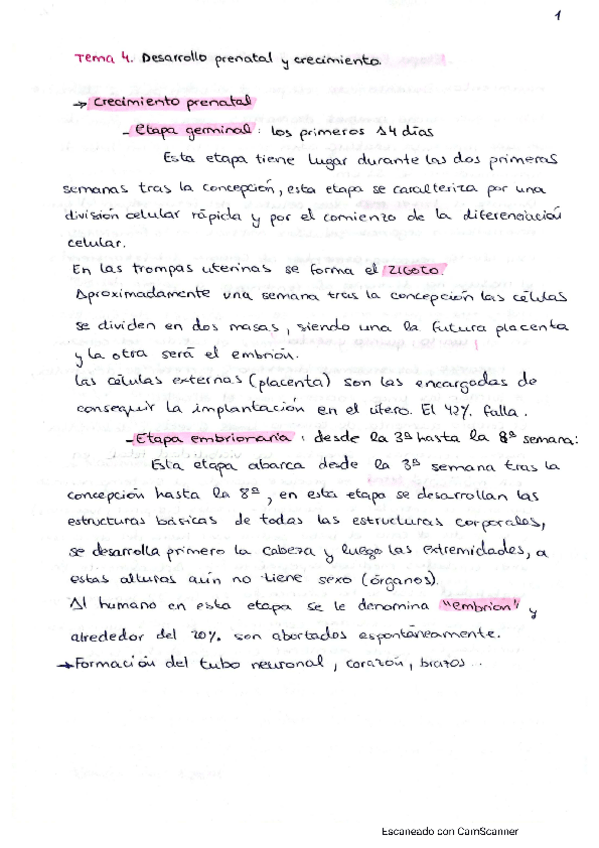 1
Tema 4. Desarrollo prenatal y crecimiento.
→ Crecimiento prenatal
- Etapa germinal: los primeros 14 días
Esta etapa tiene lugar durante las dos primeras
semanas tras la concepción, esta etapa se caracteriza por una
división celular rápida y por el comienzo de la diferenciación
celular.
En las trompas uterinas se forma el ZIGOTO.
Aproximadamente una semana tras la concepción las células
se dividen en dos masas, siendo una la futura placenta
y la otra será el embrión.
Las células externas (placenta) son las encargadas de
conseguir la implantación en el útero. El 42% falla.
- Etapa embrionaria: desde la 3ª hasta la 8ª semana:
Esta etapa abarca desde la 3ª semana tras la
concepción hasta la 8ª, en esta etapa se desarrollan las
estructuras básicas de todas las estructuras corporales,
se desarrolla primero la cabeza y luego las extremidades, a
estas alturas aún no tiene sexo (órganos).
Al humano en esta etapa se le denomina "embrion" y
alrededor del 20% son abortados espontáneamente.
→ Formación del tubo neuronal, corazón, brazos...
Escaneado con CamScanner